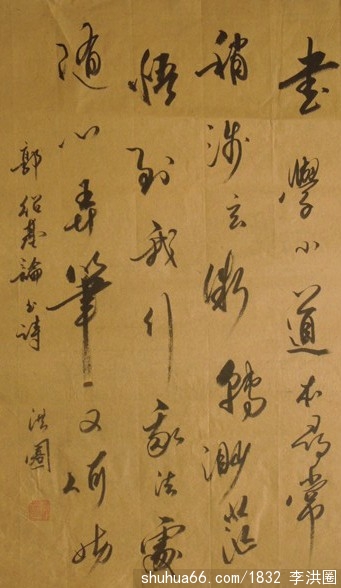 書學小道本尋常
稍涉玄微轉渺茫
悟到我行我法處
随心弄筆又何妨
郭紹虞論书詩
洪圈
shuhua66.com/1832 李洪圈